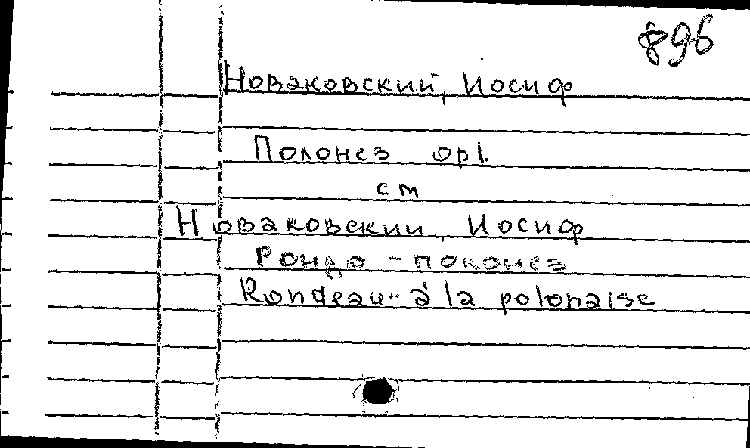 896
Новаковский, Иосиф
Полонез op1.
см
Новаковский, Иосиф
Рондо - полонез
Rondeau à la polonaise